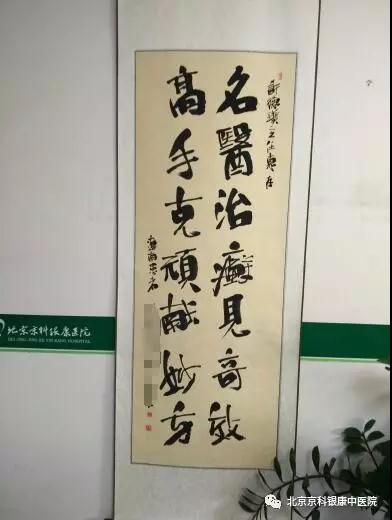 主任惠存
名醫治癬見奇效
高手克頑献妙方
湖南患者
北京京科银康医院
BEI JING JING KE YIN KANG HOSPITAL
北京京科银康中医院